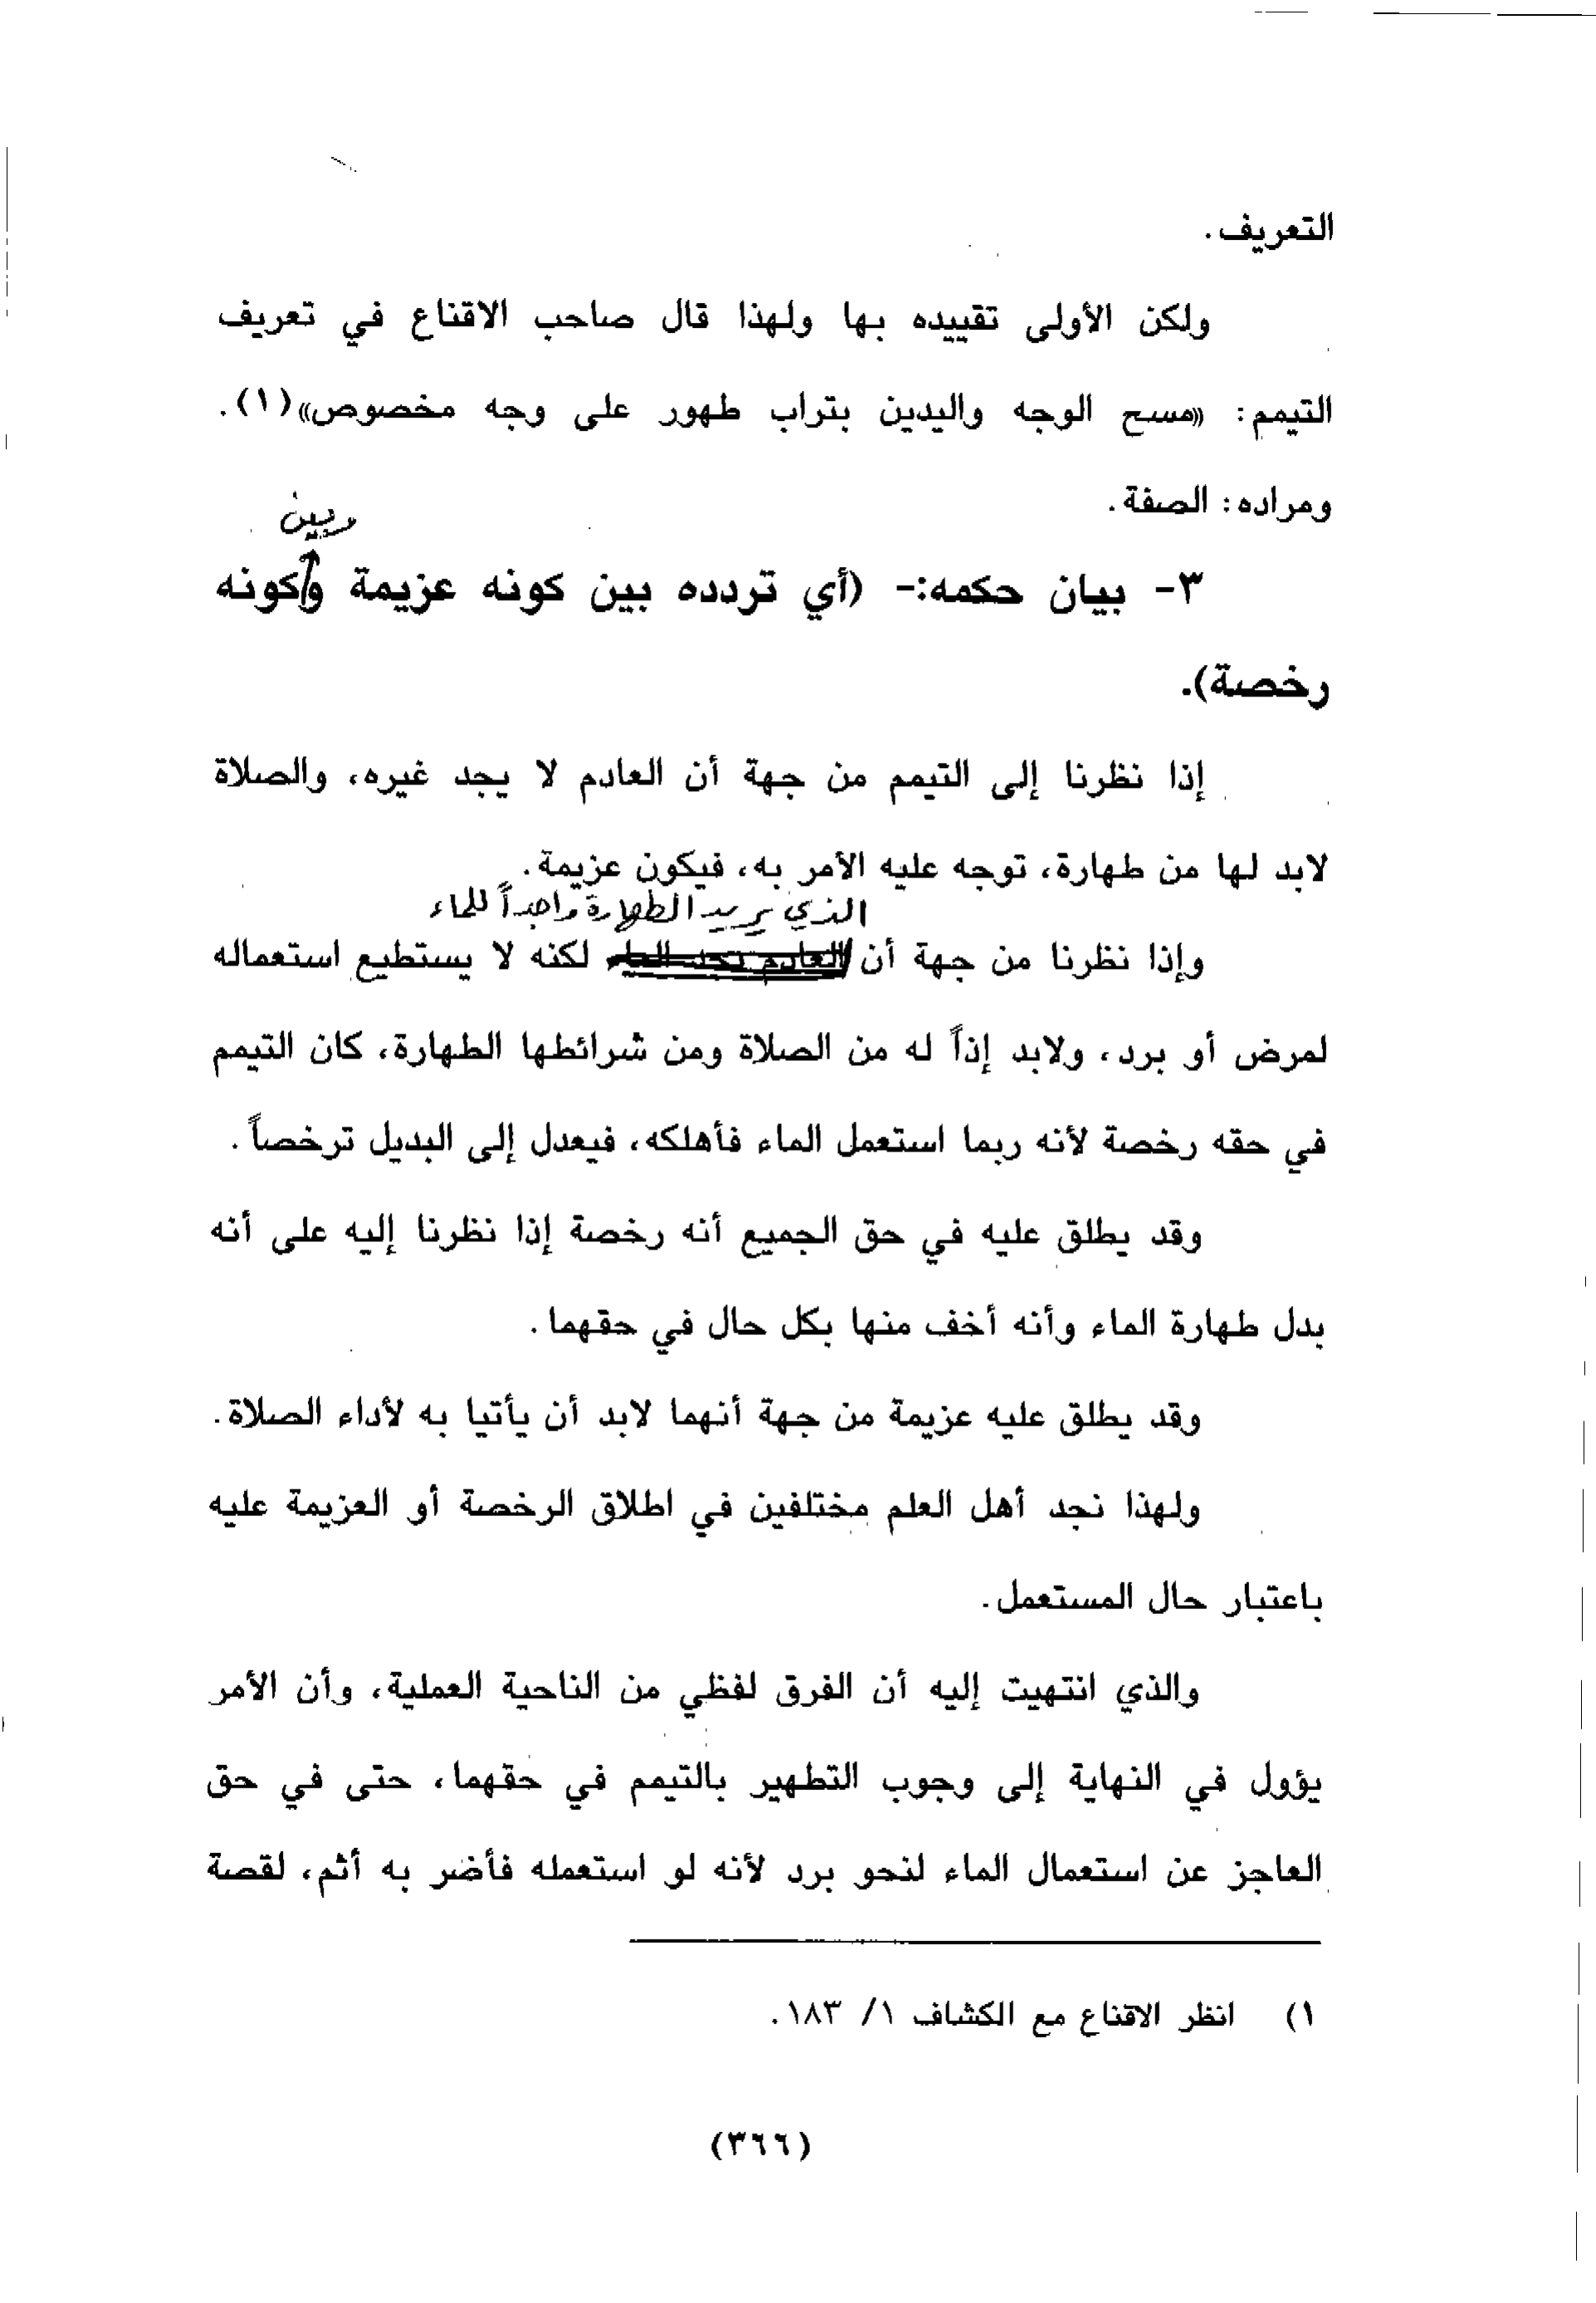 التعريف.
ولكن الأولى تقييده بها ولهذا قال صاحب الاقناع في تعريف
التيمم: «مسح الوجه واليدين بتراب طهور على وجه مخصوص»(١).
ومراده: الصفة.
وبين
٣- بيان حكمه:- (أي تردده بين كونه عزيمة وكونه
رخصة).
إذا نظرنا إلى التيمم من جهة أن العادم لا يجد غيره، والصلاة
لابد لها من طهارة، توجه عليه الأمر به، فيكون عزيمة.
الذي يريد الطهارة واجداً للماء
وإذا نظرنا من جهة أن العادم يجد الماء لكنه لا يستطيع استعماله
لمرض أو برد، ولابد إذاً له من الصلاة ومن شرائطها الطهارة، كان التيمم
في حقه رخصة لأنه ربما استعمل الماء فأهلكه، فيعدل إلى البديل ترخصاً.
وقد يطلق عليه في حق الجميع أنه رخصة إذا نظرنا إليه على أنه
بدل طهارة الماء وأنه أخف منها بكل حال في حقهما.
وقد يطلق عليه عزيمة من جهة أنهما لابد أن يأتيا به لأداء الصلاة.
ولهذا نجد أهل العلم مختلفين في اطلاق الرخصة أو العزيمة عليه
باعتبار حال المستعمل.
والذي انتهيت إليه أن الفرق لفظي من الناحية العملية، وأن الأمر
يؤول في النهاية إلى وجوب التطهير بالتيمم في حقهما، حتى في حق
العاجز عن استعمال الماء لنحو برد لأنه لو استعمله فأضر به أثم، لقصة
١) انظر الاقناع مع الكشاف ١/ ١٨٣.
(٣٦٦)